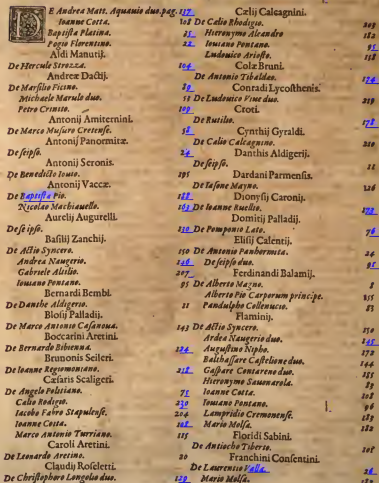 DE Andrea Matt. Aquauio duo. pag. 137
Ioanne Cotta. 108
Baptista Platina. 25
Pogio Florentino. 22
Aldi Manutij.
De Hercule Strozza. 104
Andreæ Dactij.
De Marsilio Ficino. 89
Michaele Marulo duo. 52
Petro Crinito. 109
Antonij Amiternini.
De Marco Musuro Cretense. 58
Antonij Panormitæ.
De seipso. 24
Antonij Seronis.
De Benedicto Iouio. 195
Antonij Vaccæ.
De Baptista Pio. 188
Nicolao Machiauello. 163
Aurelij Augurelli.
De seipso. 130
Basilij Zanchij.
De Actio Syncero. 150
Andrea Naugerio. 146
Gabriele Altilio. 207
Iouiano Pontano. 95
Bernardi Bembi.
De Danthe Aldigerio. 11
Blosij Palladij.
De Marco Antonio Casanoua. 143
Boccarini Aretini.
De Bernardo Bibienna. 124
Brunonis Seileri.
De Ioanne Regiomontano. 218
Cæsaris Scaligeri.
De Angelo Politiano. 71
Calio Rodigio. 230
Iacobo Fabro Stapulense. 204
Ioanne Cotta. 108
Marco Antonio Turriano. 115
Caroli Aretini.
De Leonardo Aretino. 20
Claudij Roseletti.
De Christophoro Longolio duo. 129
Cælij Calcagnini.
De Calio Rhodigio. 203
Hieronymo Aleandro 182
Iouiano Pontano. 95
Ludouico Ariosto. 158
Colæ Bruni.
De Antonio Tibaldeo. 174
Conradi Lycosthenis.
De Ludouico Viue duo. 219
Croti.
De Rutilo. 178
Cynthij Gyraldi.
De Calio Calcagnino. 210
Danthis Aldigerij.
De seipso. 11
Dardani Parmensis.
De Iasone Mayno. 126
Dionysij Caronij.
De Ioanne Ruellio. 172
Domitij Palladij.
De Pomponio Læto. 76
Elisij Calentij.
De Antonio Panhormita. 24
De seipso duo. 91
Ferdinandi Balamij.
De Alberto Magno. 8
Alberto Pio Carporum principe. 155
Pandulpho Collenucio. 83
Flaminij.
De Actio Syncero. 150
Ardea Naugerio duo. 145
Augustino Nipho. 172
Balthassare Castelione duo. 144
Gaspare Contareno duo. 185
Hieronymo Sauonarola. 89
Ioanne Cotta. 108
Iouiano Pontano. 96
Lampridio Cremonense. 189
Mario Molsa. 182
Floridi Sabini.
De Antiocho Tiberto. 105
Franchini Consentini.
De Laurentio Valla. 26
Mario Molsa. 182